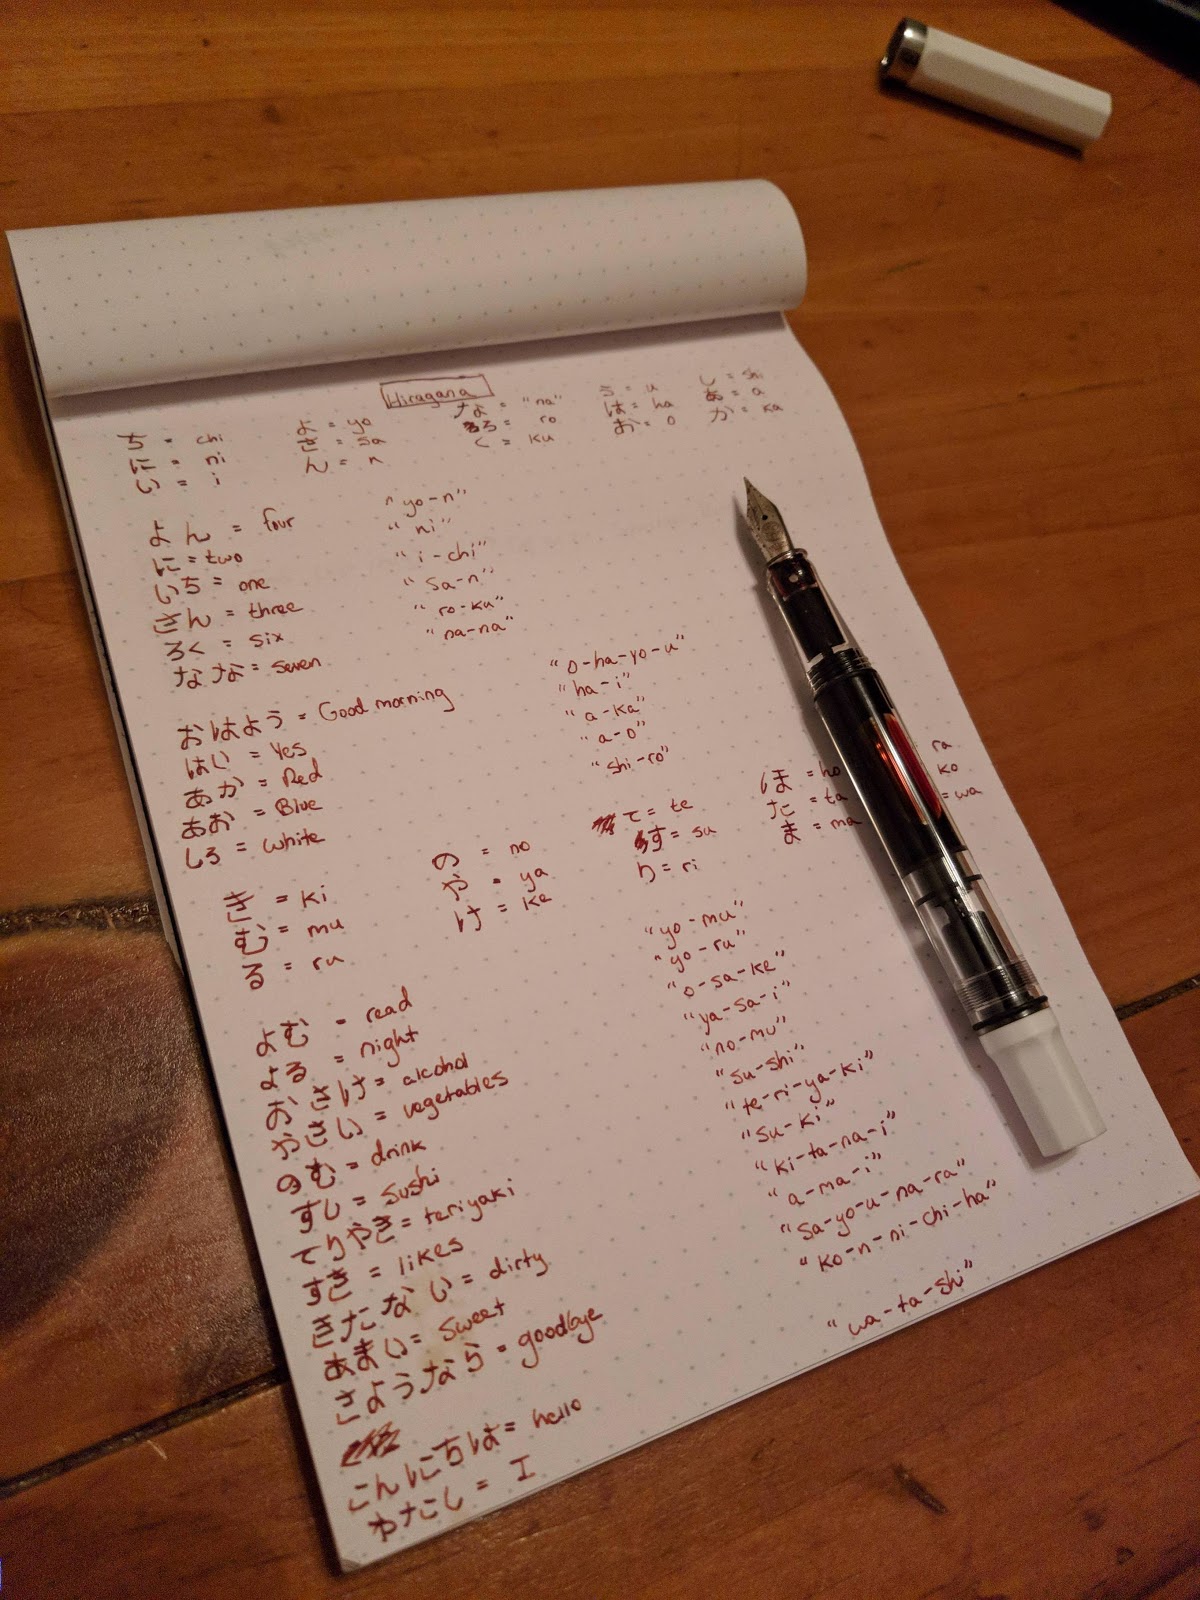 Hiragana
ち = chi よ = yo な = "na" う = u し = shi
に = ni さ = sa ろ = ro は = ha あ = a
い = i ん = n く = ku お = o か = ka
よん = four "yo-n"
に = two "ni"
いち = one "i-chi"
さん = three "sa-n"
ろく = six "ro-ku"
なな = seven "na-na"
おはよう = Good morning "o-ha-yo-u"
はい = Yes "ha-i"
あか = Red "a-ka"
あお = Blue "a-o"
しろ = white "shi-ro"
き = ki の = no て = te ほ = ho ra
む = mu や = ya す = su た = ta ko
る = ru け = ke り = ri ま = ma = wa
よむ = read "yo-mu"
よる = night "yo-ru"
おさけ = alcohol "o-sa-ke"
やさい = vegetables "ya-sa-i"
のむ = drink "no-mu"
すし = sushi "su-shi"
てりやき = teriyaki "te-ri-ya-ki"
すき = likes "su-ki"
きたない = dirty "ki-ta-na-i"
あまい = sweet "a-ma-i"
さようなら = goodbye "sa-yo-u-na-ra"
こんにちは = hello "ko-n-ni-chi-ha"
わたし = I "wa-ta-shi"